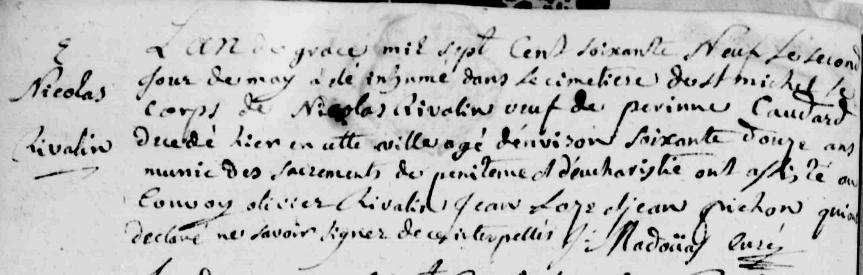 E
Nicolas
Rivalin
L'an de grace mil sept Cent soixante Neuf le second
jour de may a été inhumé dans le cimetiere de st michel le
corps de Nicolas Rivalin veuf de perinne Caudard
decedé hier en cette ville agé d'environ soixante douze ans
munie des sacrements de penitence et d'eucharistie ont assisté au
Convoy olivier Rivalin jean et jean pichon qui ont
declaré ne savoir signer de ce interpellés J: Madoüas Curé